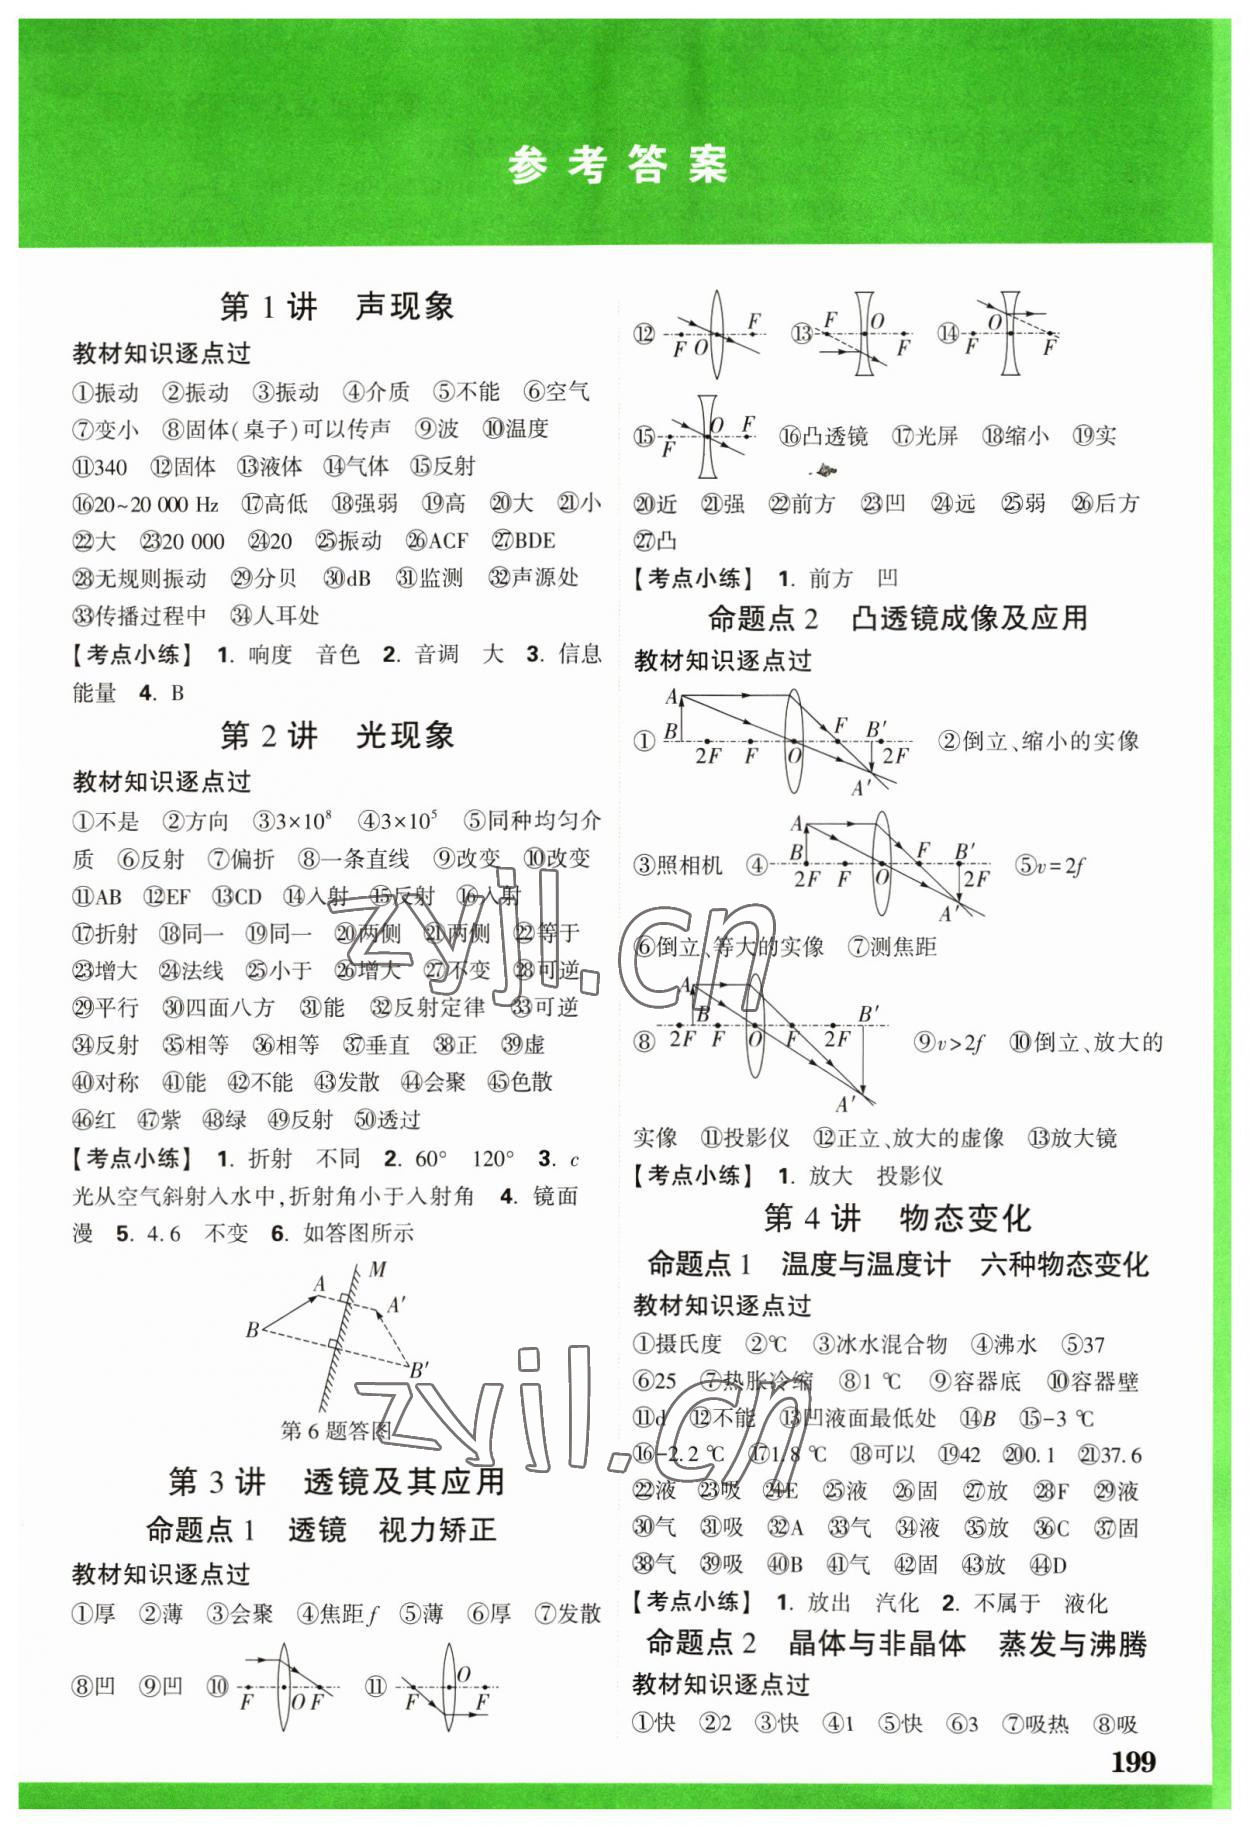 参考答案
第1讲 声现象
教材知识逐点过
①振动 ②振动 ③振动 ④介质 ⑤不能 ⑥空气
⑦变小 ⑧固体(桌子)可以传声 ⑨波 ⑩温度
⑪340 ⑫固体 ⑬液体 ⑭气体 ⑮反射
⑯20~20 000 Hz ⑰高低 ⑱强弱 ⑲高 ⑳大 ㉑小
㉒大 ㉓20 000 ㉔20 ㉕振动 ㉖ACF ㉗BDE
㉘无规则振动 ㉙分贝 ㉚dB ㉛监测 ㉜声源处
㉝传播过程中 ㉞人耳处
【考点小练】 1. 响度 音色 2. 音调 大 3. 信息
能量 4. B
第2讲 光现象
教材知识逐点过
①不是 ②方向 ③3×10⁸ ④3×10⁵ ⑤同种均匀介
质 ⑥反射 ⑦偏折 ⑧一条直线 ⑨改变 ⑩改变
⑪AB ⑫EF ⑬CD ⑭入射 ⑮反射 ⑯入射
⑰折射 ⑱同一 ⑲同一 ⑳两侧 ㉑两侧 ㉒等于
㉓增大 ㉔法线 ㉕小于 ㉖增大 ㉗不变 ㉘可逆
㉙平行 ㉚四面八方 ㉛能 ㉜反射定律 ㉝可逆
㉞反射 ㉟相等 ㊱相等 ㊲垂直 ㊳正 ㊴虚
㊵对称 ㊶能 ㊷不能 ㊸发散 ㊹会聚 ㊺色散
㊻红 ㊼紫 ㊽绿 ㊾反射 ㊿透过
【考点小练】 1. 折射 不同 2. 60° 120° 3. c
光从空气斜射入水中,折射角小于入射角 4. 镜面
漫 5. 4.6 不变 6. 如答图所示
M
A
A′
B
B′
第6题答图
第3讲 透镜及其应用
命题点1 透镜 视力矫正
教材知识逐点过
①厚 ②薄 ③会聚 ④焦距f ⑤薄 ⑥厚 ⑦发散
⑧凹 ⑨凹 ⑩ F O F ⑪ F O F
⑫ F O F ⑬ F O F ⑭ F O F
⑮ F O F ⑯凸透镜 ⑰光屏 ⑱缩小 ⑲实
⑳近 ㉑强 ㉒前方 ㉓凹 ㉔远 ㉕弱 ㉖后方
㉗凸
【考点小练】 1. 前方 凹
命题点2 凸透镜成像及应用
教材知识逐点过
① A B 2F F O F B′ 2F A′ ②倒立、缩小的实像
③照相机 ④ A B 2F F O F B′ 2F A′ ⑤v=2f
⑥倒立、等大的实像 ⑦测焦距
⑧ A B 2F F O F 2F B′ A′ ⑨v>2f ⑩倒立、放大的
实像 ⑪投影仪 ⑫正立、放大的虚像 ⑬放大镜
【考点小练】 1. 放大 投影仪
第4讲 物态变化
命题点1 温度与温度计 六种物态变化
教材知识逐点过
①摄氏度 ②℃ ③冰水混合物 ④沸水 ⑤37
⑥25 ⑦热胀冷缩 ⑧1 ℃ ⑨容器底 ⑩容器壁
⑪d ⑫不能 ⑬凹液面最低处 ⑭B ⑮-3 ℃
⑯-2.2 ℃ ⑰1.8 ℃ ⑱可以 ⑲42 ⑳0.1 ㉑37.6
㉒液 ㉓吸 ㉔E ㉕液 ㉖固 ㉗放 ㉘F ㉙液
㉚气 ㉛吸 ㉜A ㉝气 ㉞液 ㉟放 ㊱C ㊲固
㊳气 ㊴吸 ㊵B ㊶气 ㊷固 ㊸放 ㊹D
【考点小练】 1. 放出 汽化 2. 不属于 液化
命题点2 晶体与非晶体 蒸发与沸腾
教材知识逐点过
①快 ②2 ③快 ④1 ⑤快 ⑥3 ⑦吸热 ⑧吸
199
zyjl.cn
zyjl.cn